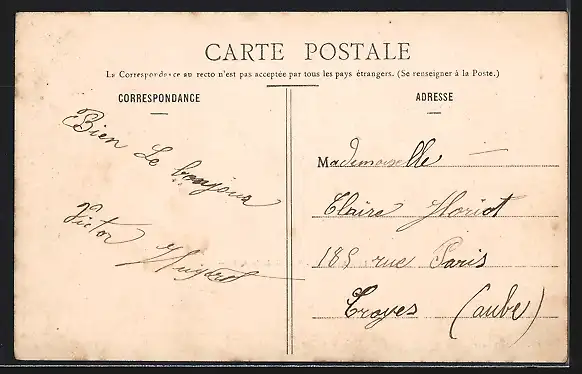 CARTE POSTALE
La Correspondance au recto n'est pas acceptée par tous les pays étrangers. (Se renseigner à la Poste.)
CORRESPONDANCE
Bien Le bonjour
Victor
ADRESSE
Mademoiselle
Claire Horiot
185 rue Paris
Troyes (aube)